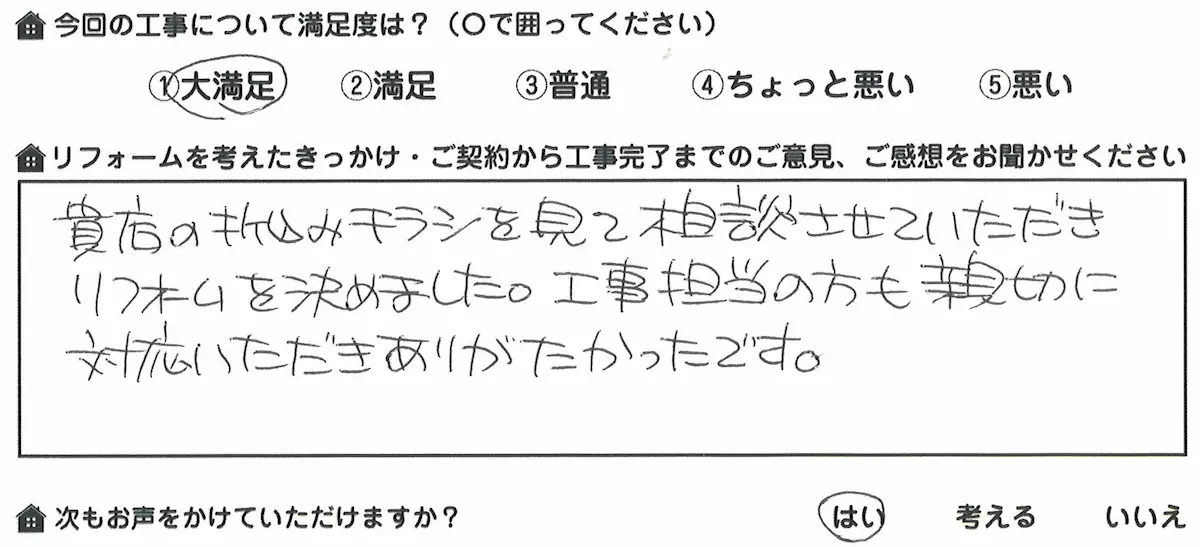 今回の工事について満足度は？（〇で囲ってください）
①大満足 ②満足 ③普通 ④ちょっと悪い ⑤悪い
リフォームを考えたきっかけ・ご契約から工事完了までのご意見、ご感想をお聞かせください
貴店の折込みチラシを見て相談させていただき
リフォームを決めました。工事担当の方も親切に
対応いただきありがたかったです。
次もお声をかけていただけますか？ はい 考える いいえ